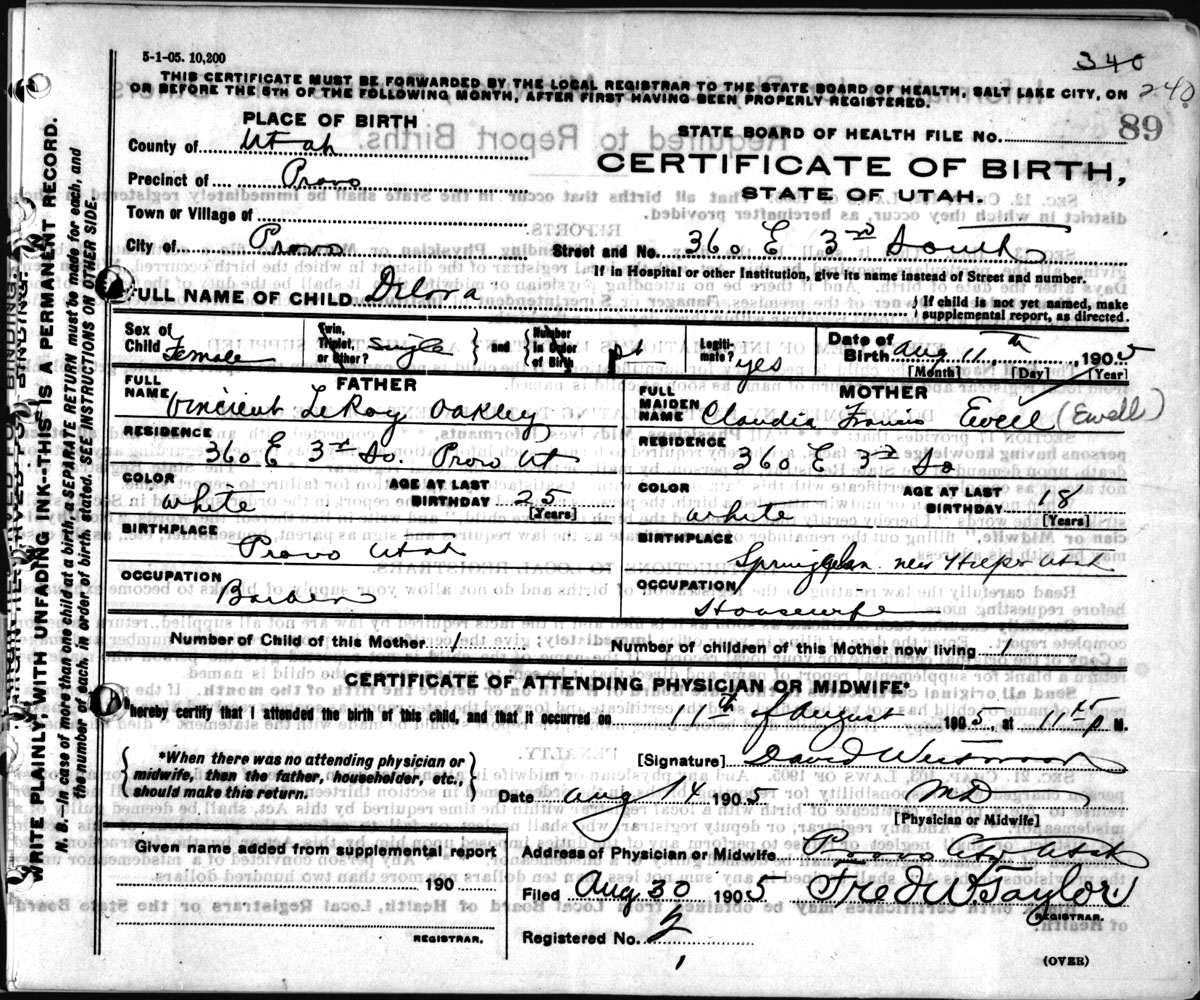 5-1-05. 10,200
340
THIS CERTIFICATE MUST BE FORWARDED BY THE LOCAL REGISTRAR TO THE STATE BOARD OF HEALTH, SALT LAKE CITY, ON
OR BEFORE THE 5TH OF THE FOLLOWING MONTH, AFTER FIRST HAVING BEEN PROPERLY REGISTERED.
240
89
PLACE OF BIRTH
STATE BOARD OF HEALTH FILE No.
County of Utah
CERTIFICATE OF BIRTH,
Precinct of Provo
STATE OF UTAH.
Town or Village of
City of Provo
Street and No. 360 E 3rd South
If in Hospital or other Institution, give its name instead of Street and number.
FULL NAME OF CHILD Delora
If child is not yet named, make
supplemental report, as directed.
Sex of Child Female
Twin, Triplet, or Other? Single
and Number in Order of Birth
Legitimate? yes
Date of Birth Aug 11th, 1905
[Month] [Day] [Year]
FATHER
FULL NAME Vincient LeRoy Oakley
RESIDENCE 360 E. 3rd So. Provo Ut
COLOR white
AGE AT LAST BIRTHDAY 25
[Years]
BIRTHPLACE Provo Utah
OCCUPATION Barber
MOTHER
FULL MAIDEN NAME Claudia Francis Ewell (Ewell)
RESIDENCE 360 E 3rd So
COLOR white
AGE AT LAST BIRTHDAY 18
[Years]
BIRTHPLACE near Helper Utah
OCCUPATION Housewife
Number of Child of this Mother 1
Number of children of this Mother now living 1
CERTIFICATE OF ATTENDING PHYSICIAN OR MIDWIFE*
I hereby certify that I attended the birth of this child, and that it occurred on 11th of August 1905, at 11 P M.
*When there was no attending physician or
midwife, then the father, householder, etc.,
should make this return.
[Signature] David Westwood
Date Aug 14 1905 MD
[Physician or Midwife]
Given name added from supplemental report
190
REGISTRAR.
Address of Physician or Midwife Provo City Utah
Filed Aug 30 1905 Fred W. Taylor
REGISTRAR.
Registered No.
(OVER)
WRITE PLAINLY, WITH UNFADING INK--THIS IS A PERMANENT RECORD.
N. B.--In case of more than one child at a birth, a SEPARATE RETURN must be made for each, and
the number of each, in order of birth, stated. (SEE INSTRUCTIONS ON OTHER SIDE.